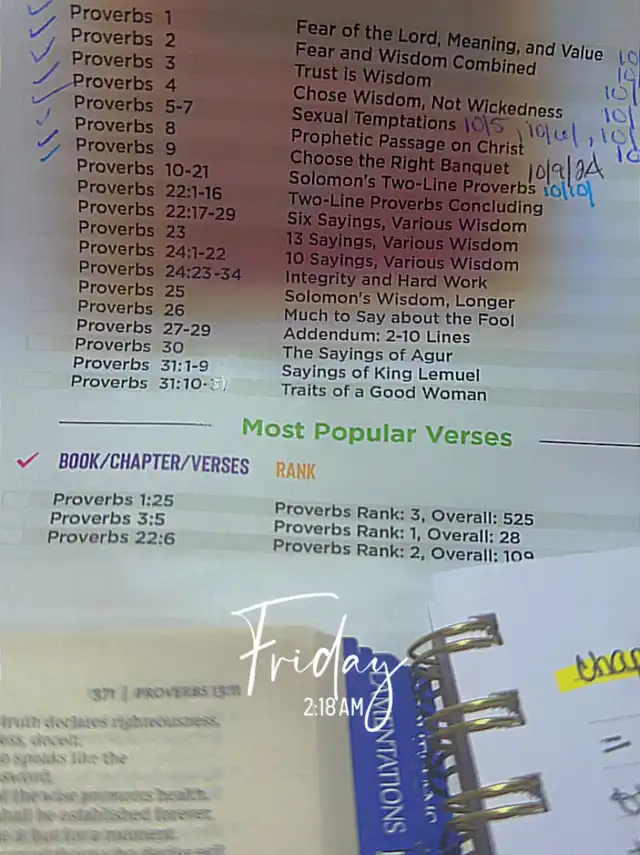 Proverbs 1 Fear of the Lord, Meaning, and Value 10
Proverbs 2 Fear and Wisdom Combined
Proverbs 3 Trust is Wisdom 10/
Proverbs 4 Chose Wisdom, Not Wickedness 10/
Proverbs 5-7 Sexual Temptations 10/5, 10/6/, 10/
Proverbs 8 Prophetic Passage on Christ
Proverbs 9 Choose the Right Banquet 10/9/24
Proverbs 10-21 Solomon's Two-Line Proverbs 10/10/
Proverbs 22:1-16 Two-Line Proverbs Concluding
Proverbs 22:17-29 Six Sayings, Various Wisdom
Proverbs 23 13 Sayings, Various Wisdom
Proverbs 24:1-22 10 Sayings, Various Wisdom
Proverbs 24:23-34 Integrity and Hard Work
Proverbs 25 Solomon's Wisdom, Longer
Proverbs 26 Much to Say about the Fool
Proverbs 27-29 Addendum: 2-10 Lines
Proverbs 30 The Sayings of Agur
Proverbs 31:1-9 Sayings of King Lemuel
Proverbs 31:10-31 Traits of a Good Woman
Most Popular Verses
BOOK/CHAPTER/VERSES RANK
Proverbs 1:25 Proverbs Rank: 3, Overall: 525
Proverbs 3:5 Proverbs Rank: 1, Overall: 28
Proverbs 22:6 Proverbs Rank: 2, Overall: 109
Friday
2:18 AM
chap
371 | PROVERBS 13:11
truth declares righteousness,
deceit.
speaks like the
sword.
the wise promotes health.
shall be established forever,
is but for a moment.
LAMENTATIONS